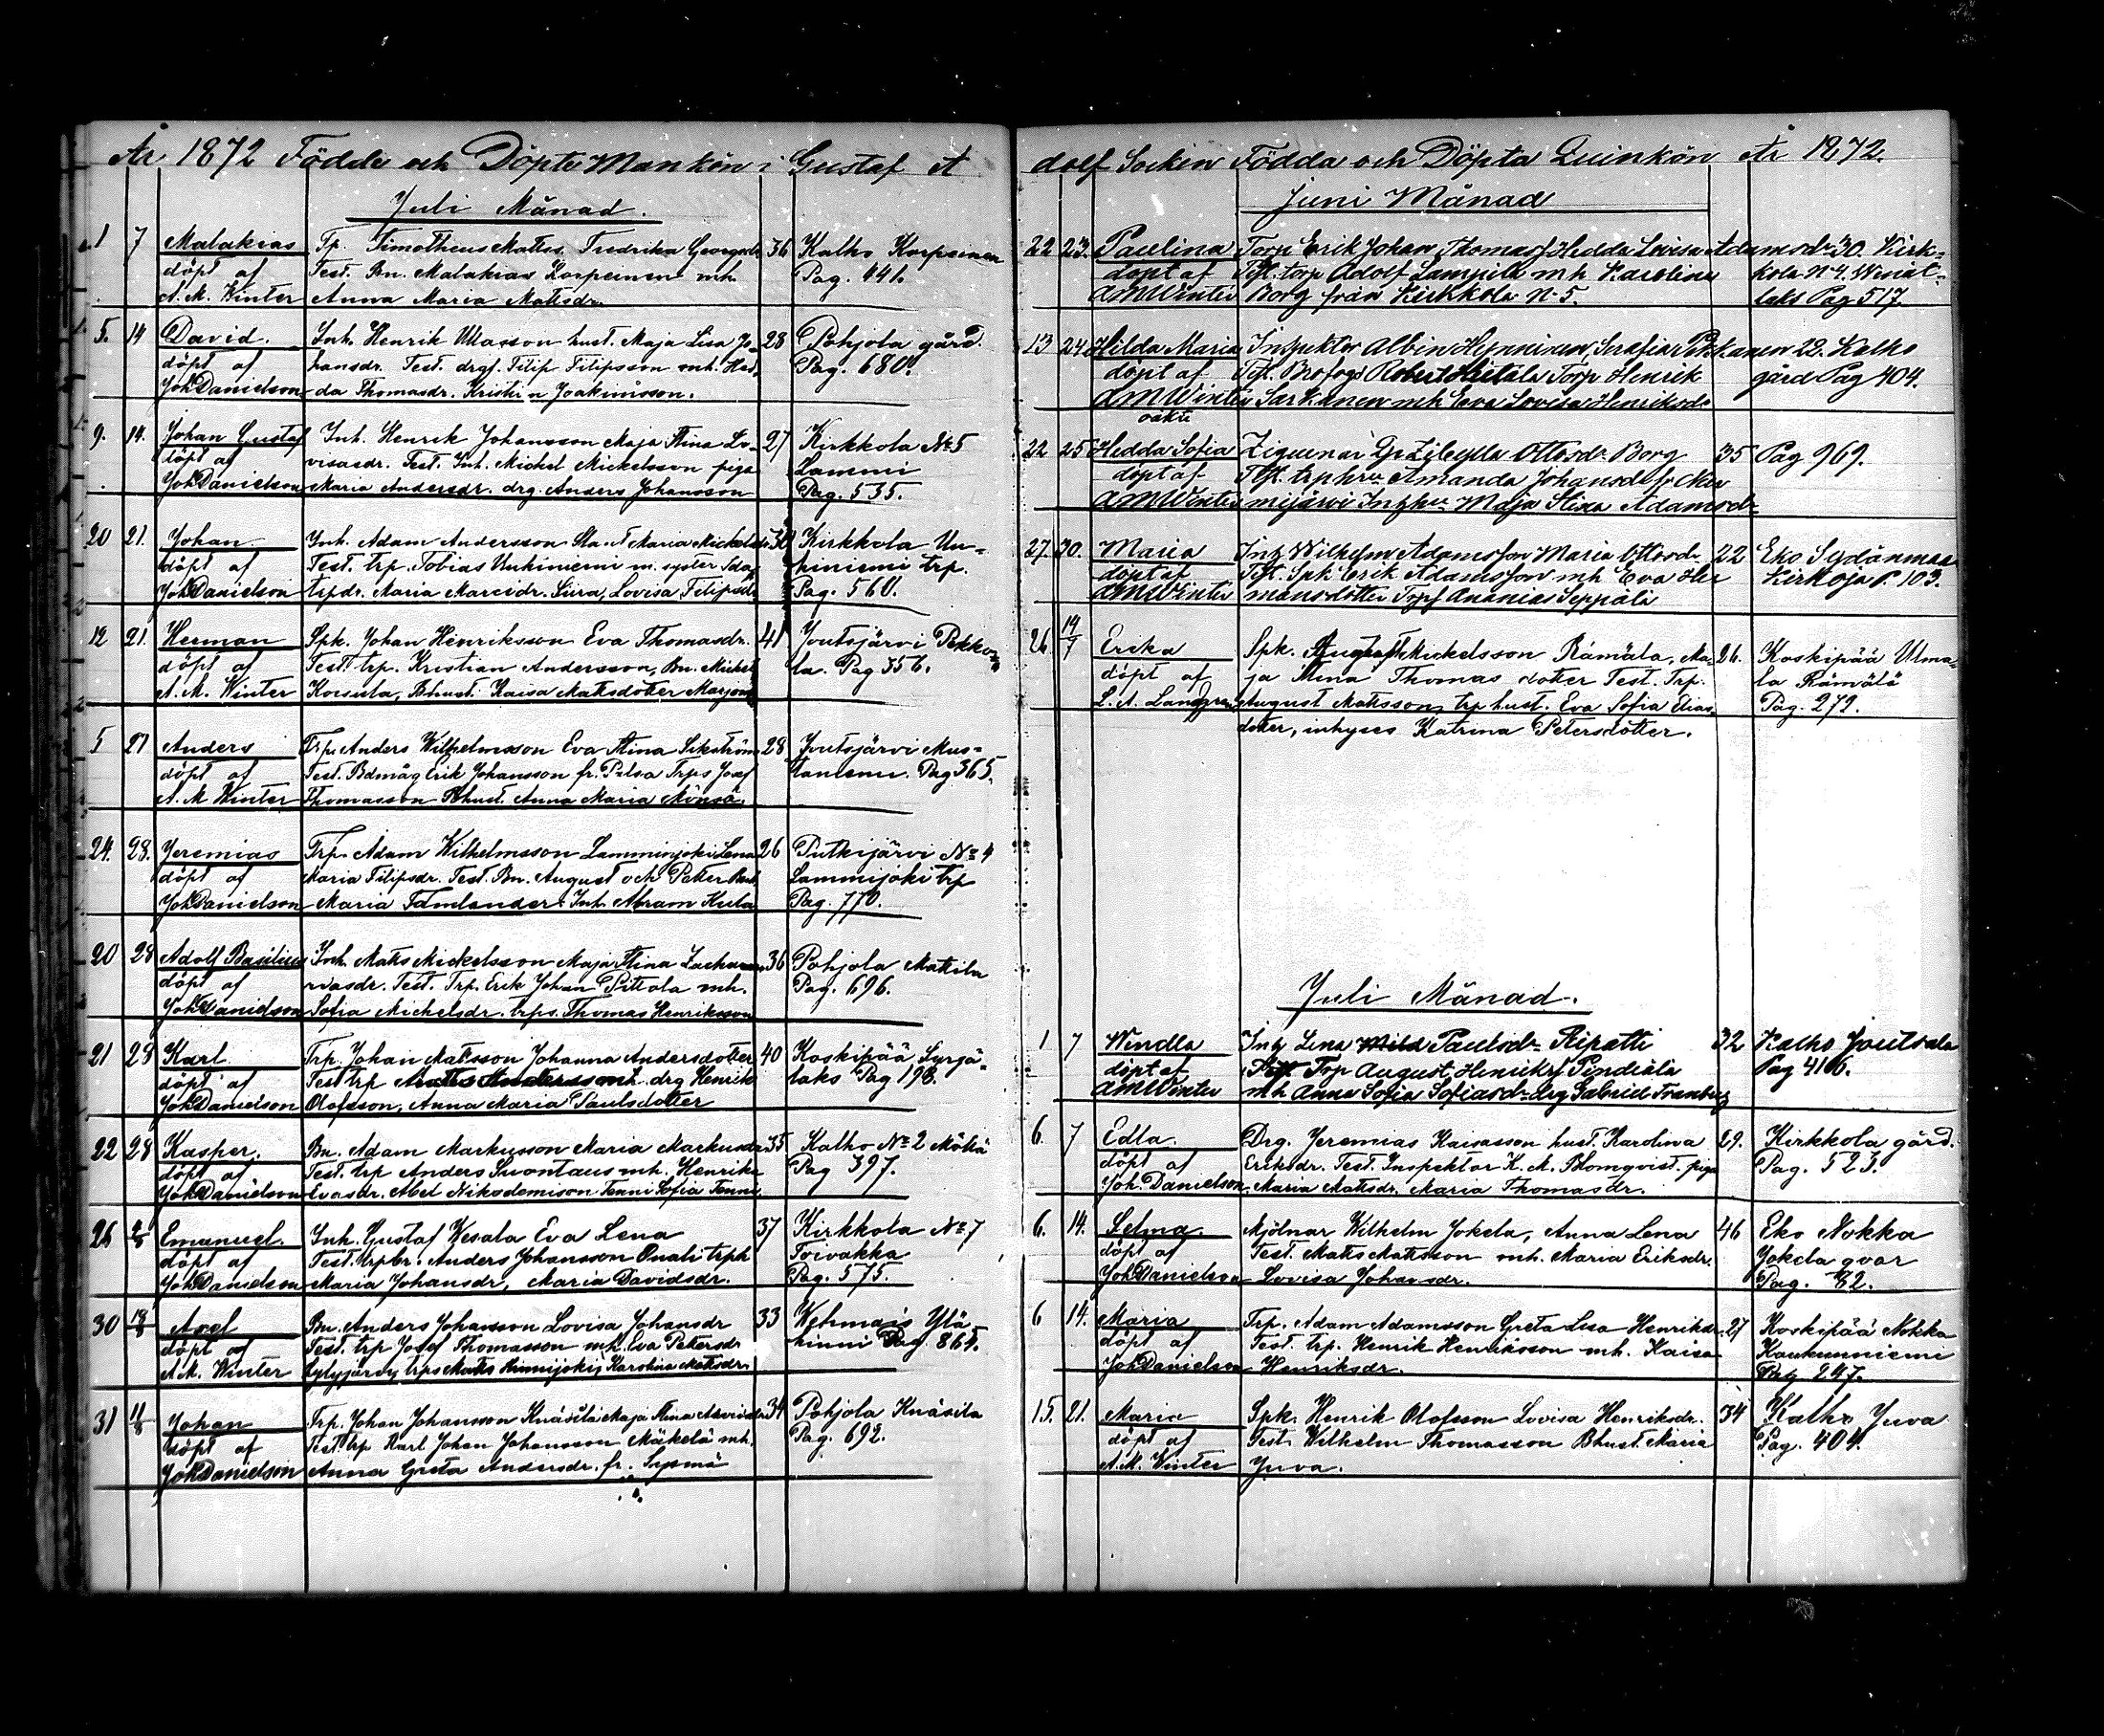 År 1872 Födde och Döpte Mankön i Gustaf A
Juli Månad.
1 7 Malakias Tp. Timotheus Mattss. Fredrika Georgsdr 36 Kalho Korpeinen
döpt af Test. Bn. Malakias Korpeinen mh. Pag. 441.
A. M. Winter Anna Maria Mattsdr.
5. 14 David. Inh. Henrik hust. Maja Lisa Jo- 28 Pohjola gård.
döpt af hansdr. Test. drgf. Filip Filipsson mh. Hed- Pag. 680.
Joh Danielson da Thomasdr. Kristin Joakimsson.
9. 14. Johan Gustaf Inh. Henrik Johansson Maja Stina Lo- 27 Kirkkola No 5
döpt af visasdr. Test. Inh. Michel Mickelsson piga Lammi
Joh Danielson Maria Andersdr. drg. Anders Johansson Pag. 535.
20 21. Johan Inh. Adam Andersson Maria Mickelsdr 30 Kirkkola Un-
döpt af Test. trp. Tobias m. syster Ida hiniemi trp.
Joh Danielson trpdr. Maria Marcidr. Siira, Lovisa Filipsdr Pag. 560.
12 21. Herman Spk. Johan Henriksson Eva Thomasdr. 41 Joutsjärvi Pekko-
döpt af Test. trp. Kristian Andersson, Bn. Michel la. Pag 356.
A. M. Winter Bhust. Kaisa Mattsdotter
5 21 Anders Trp. Anders Wilhelmsson Eva Stina Sikström 28 Joutsjärvi Mus-
döpt af Test. Bdmåg Erik Johansson fr. Trps Josef taniemi. Pag 365.
A. M Winter Thomasson Bhust. Anna Maria
24. 28. Jeremias Trp. Adam Wilhelmsson Lamminjoki Lena 26 Putkijärvi No 4
döpt af Maria Filipsdr. Test. Bn. August och Petter Lammijoki trp
Joh Danielson Maria Tamlander Inh. Abram Pag. 770.
20 28 Adolf Basilius Inh. Matts Mickelsson Maja Stina Zacha 36 Pohjola Mattila
döpt af riasdr. Test. Trp. Erik Johan Pittola mh. Pag. 696.
Joh Danielson Sofia Michelsdr. trps. Thomas Henriksson
21 28 Karl Trp. Johan Matsson Johanna Andersdotter 40 Koskipää Syrjä-
döpt af Test trp Matts Andersson mh. drg Henrik laks Pag 198.
Joh Danielson Olofsson, Anna Maria Paulsdotter
22 28 Kasper. Bn. Adam Markusson Maria Markusdr 35 Kalho No 2
döpt af Test. trp Anders Suontaus mh. Henrika Pag 397.
Joh Danielson Evasdr. Abel Nikodemison Tenni Sofia Tenni
26 4/8 Emanuel. Inh. Gustaf Wesala Eva Lena 37 Kirkkola No 7
döpt af Test. trpbr. Anders Johansson trph Toivakka
Joh Danielson Maria Johansdr, Maria Davidsdr. Pag. 575.
30 Axel Bn. Anders Johansson Lovisa Johansdr 33 Wehmais Ylä
döpt af Test. trp Josef Thomasson mh. Eva Petersdr hinni Pag. 865.
A. M. Winter trps Matts Karolina Mattsdr.
31 11/8 Johan Trp. Johan Johansson Knäsilä Maja Stina 34 Pohjola Knäsila
döpt af Test. trp Karl Johan Johansson Mäkelä mh. Pag. 692.
Joh Danielson Anna Greta Andersdr. fr. Sysmä
dolf Sockin Födda och Döpta Quinkön År 1872.
Juni Månad
22 23. Paulina Torp Erik Johan Thomass Hedda Lovisa Adamsdr 30. Kirk-
döpt af Tst. torp Adolf Lampila mh Karolina kola N 4.
AMWinter Borg från Kirkkola N 5. laks Pag 517
13 24 Hilda Maria Inspektor Albin Hynninen, Serafia 22. Kalho
döpt af Tst. Brofogd Robert Torp Henrik gård Pag 404.
AMWinter Sarkanen mh Eva Lovisa Henriksdr
oäkta
22 25 Hedda Sofia Ziguenar Ottosdr Borg 35 Pag 969.
döpt af Tst. Amanda Johansdr fr
AMWinter Maja Stina Adamsdr
27. 30. Maria Inh Wilhelm Adamsson Maria Ottosdr 22 Eko Sydänmaa
döpt af Tst. Spk Erik Adamsson mh Eva Her Kirkoja P. 103.
AMWinter mansdotter Ananias Seppälä
26. 14/7 Erika Spk. August Mickelsson Rämälä, Ma- 26. Koskipää Ulma-
döpt af ja Stina Thomas dotter Test. Trp. la Rämälä
L. A. Landgren August Mattsson trp hust. Eva Sofia Elias- Pag. 272.
dotter, inhyses Katrina Petersdotter.
Juli Månad.
1 7 Wendla Inh Lena Paulsdr Ripatti 32 Kalho Joutsela
döpt af Torp August Henrikss Pag 416.
AMWinter mh Anna Sofia Sofiasdr drg Gabriel Tranberg
6. 7 Edla. Drg. Jeremias Kaisasson hust. Karolina 29. Kirkkola gård.
döpt af Eriksdr. Test. Inspektor K. A. Blomqvist. piga Pag. 523.
Joh. Danielson Maria Mattsdr. Maria Thomasdr.
6. 14. Selma. Mjölnar Wilhelm Jokela, Anna Lena 46 Eko Nokka
döpt af Test. Matts Mattsson mh. Maria Eriksdr. Jokela qvar
Joh Danielson Lovisa Johansdr. Pag. 82.
6 14. Maria Trp. Adam Adamsson Greta Lisa Henriksdr. 27 Koskipää Nokka
döpt af Test. trp. Henrik Henriksson mh. Kaisa Kaukunniemi
Joh Danielson Henriksdr. Pag 247.
15. 21. Maria Spk. Henrik Olofsson Lovisa Henriksdr. 34 Kalho Juva
döpt af Test. Wilhelm Thomasson Bhust. Maria Pag. 404.
A. M. Winter Juva.